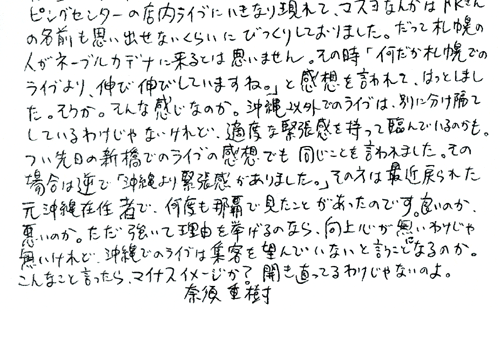 ピングセンターの店内ライブにいきなり現れて、マスヨなんかはKKさん
の名前も思い出せないくらいにびっくりしておりました。だって札幌の
人がネーブルカデナに来るとは思いません。その時「何だか札幌での
ライブより、伸び伸びしていますね。」と感想を言われて、はっとしまし
た。そうか。そんな感じなのか。沖縄以外でのライブは、別に分け隔て
しているわけじゃないけれど、適度な緊張感を持って臨んでいるのかも。
つい先日の新橋でのライブの感想でも同じことを言われました。その
場合は逆で「沖縄より緊張感がありました。」その方は最近戻られた
元沖縄在住者で、何度も那覇で見たことがあったのです。良いのか、
悪いのか。ただ強いて理由を挙げるのなら、向上心が無いわけじゃ
無いけれど、沖縄でのライブは集客を望んでいないと言うことになるのか。
こんなこと言ったら、マイナスイメージか？開き直ってるわけじゃないのよ。
奈須重樹